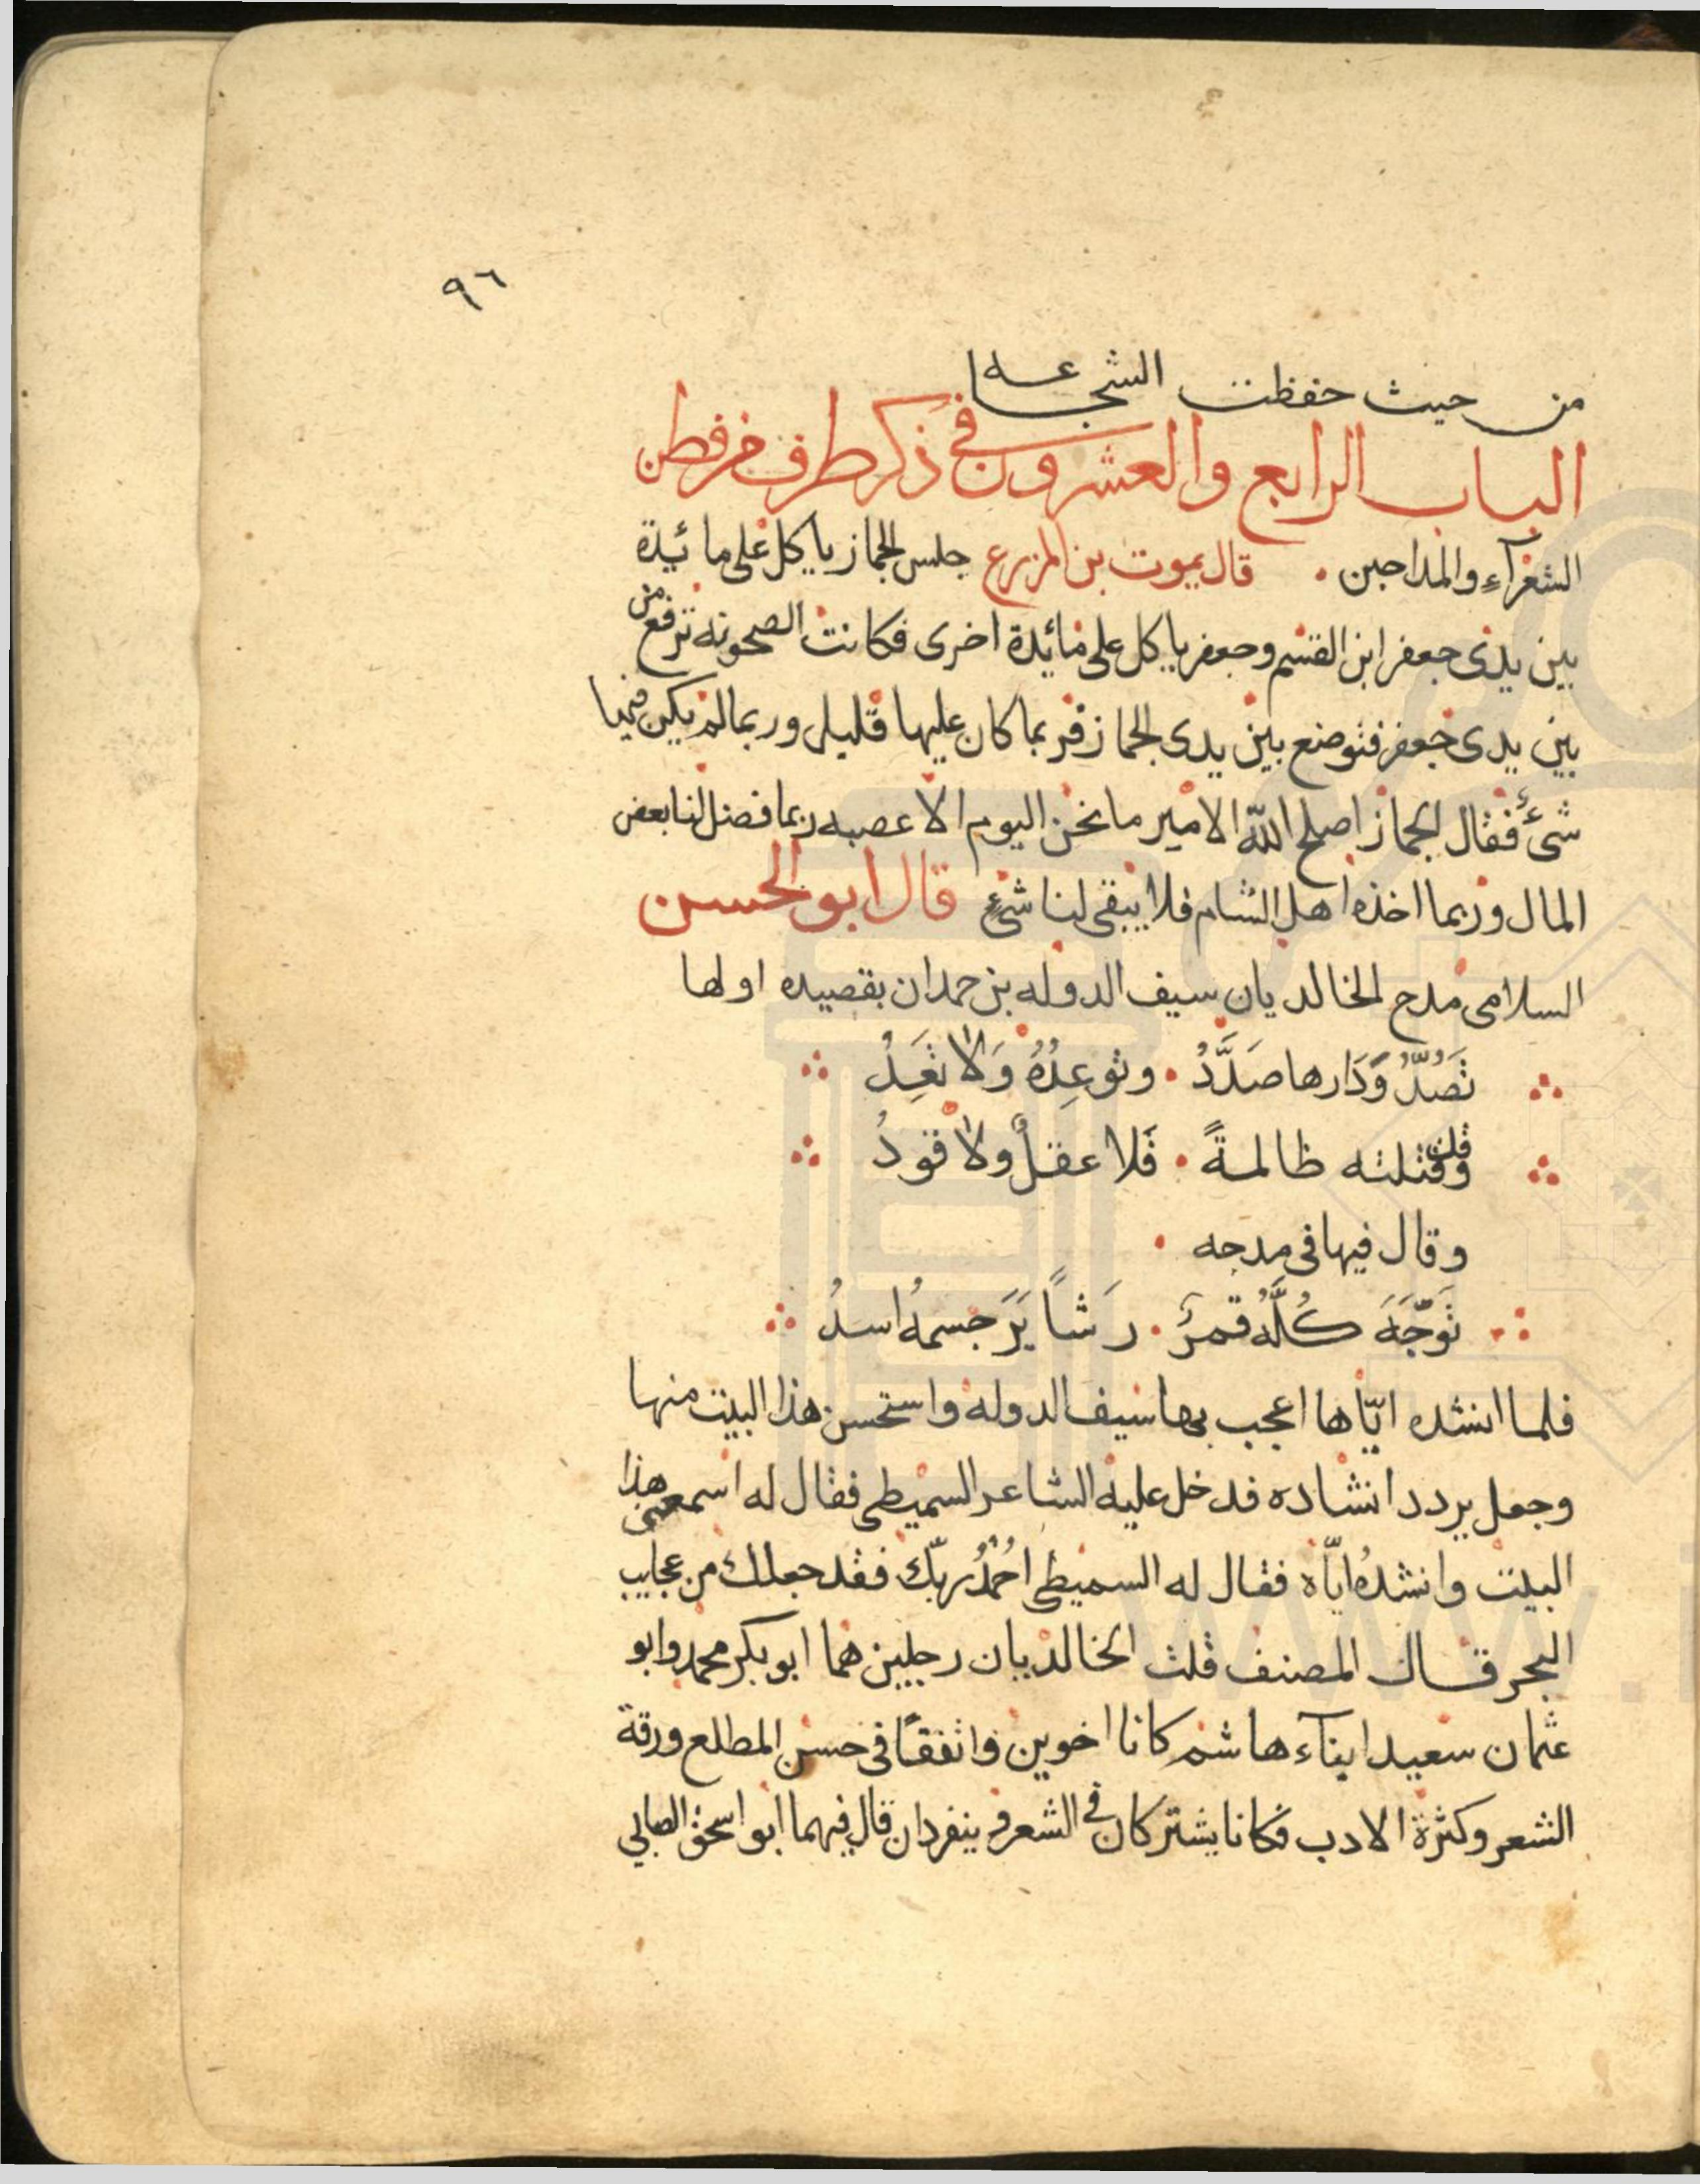 ٩٦
من حيث حفظت الشجاعه
الباب الرابع والعشرون في ذكر طرف من فطن
الشعرآء والمداحين . قال يموت بن المزرع جلس الجماز ياكل على مائيدة
بين يدى جعفر ابن القسم وجعفر ياكل على مائيدة اخرى فكانت الصحونه ترفع من
بين يدى جعفر فتوضع بين يدى الجماز فربما كان عليها قليل وربما لم يكن فيها
شئ فقال الجماز اصلح الله الامير ما نحن اليوم الا عصبه ربما فضل لنا بعض
المال وربما اخذه اهل الشام فلا يبقى لنا شئ قال ابو الحسن
السلامى مدح الخالديان سيف الدوله بن حمدان بقصيده اولها
تَصُدُّ وَدَارها صَدَدُ . وتوعِدُهُ وَلا تَعِدُ
وقد قتلته ظالمةً . فَلا عقلٌ ولا قودُ
وقال فيها فى مدحه .
تَوَجَّهَ كُلُّهُ قمرٌ . رَشاً يَرَ جسمهُ اسدُ
فلما انشده ايّاها اعجب بها سيف الدوله واستحسن هذا البيت منها
وجعل يردد انشاده فدخل عليه الشاعر السميطى فقال له اسمع هذا
البيت وانشدهُ ايّاه فقال له السميطى احُمدُ ربّك فقد جعلك من عجايب
البحر قال المصنف قلت الخالديان رجلين هما ابو بكر محمد وابو
عثمان سعيد ابنآء هاشم كانا اخوين واتفقا فى حسن المطلع ورقة
الشعر وكثرة الادب فكانا يشتركان في الشعر و ينفردان قال فيهما ابو اسحق الصابي